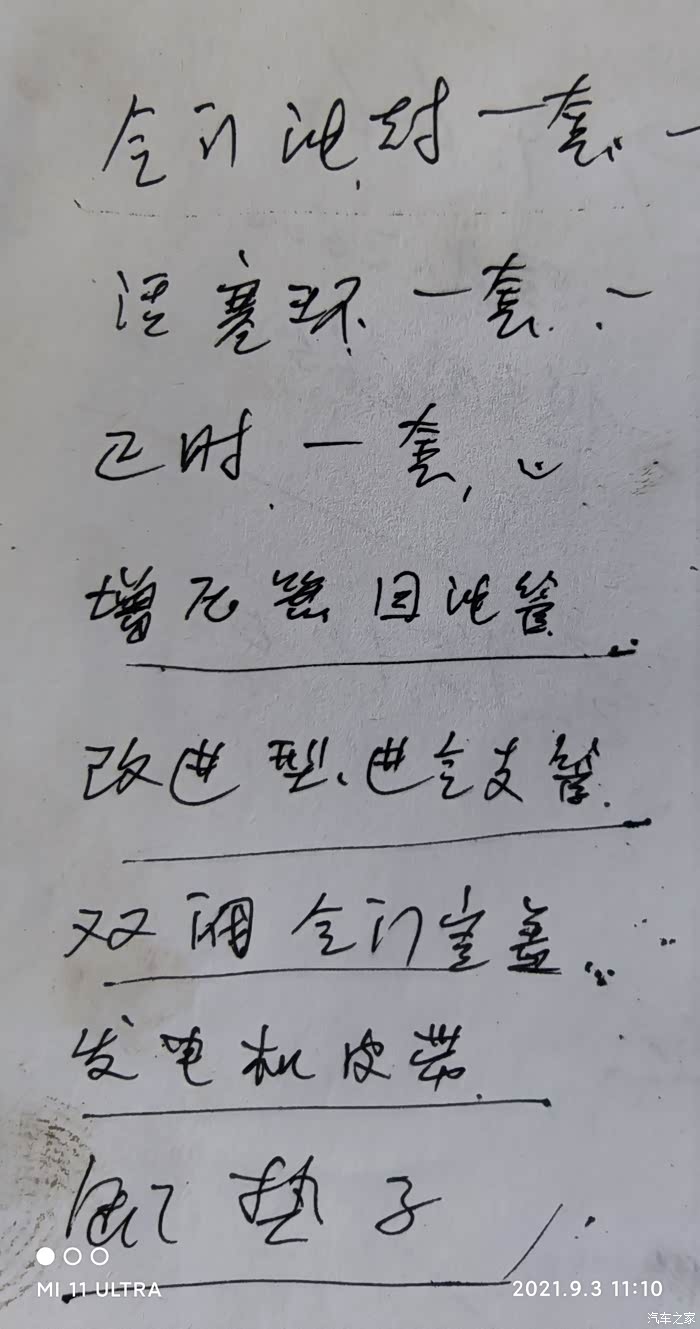 气门油封一套
活塞环一套
正时一套
增压器回油管
改进型、进气支管
双 气门室盖
发电机皮带
垫子
MI 11 ULTRA
2021.9.3 11:10
汽车之家